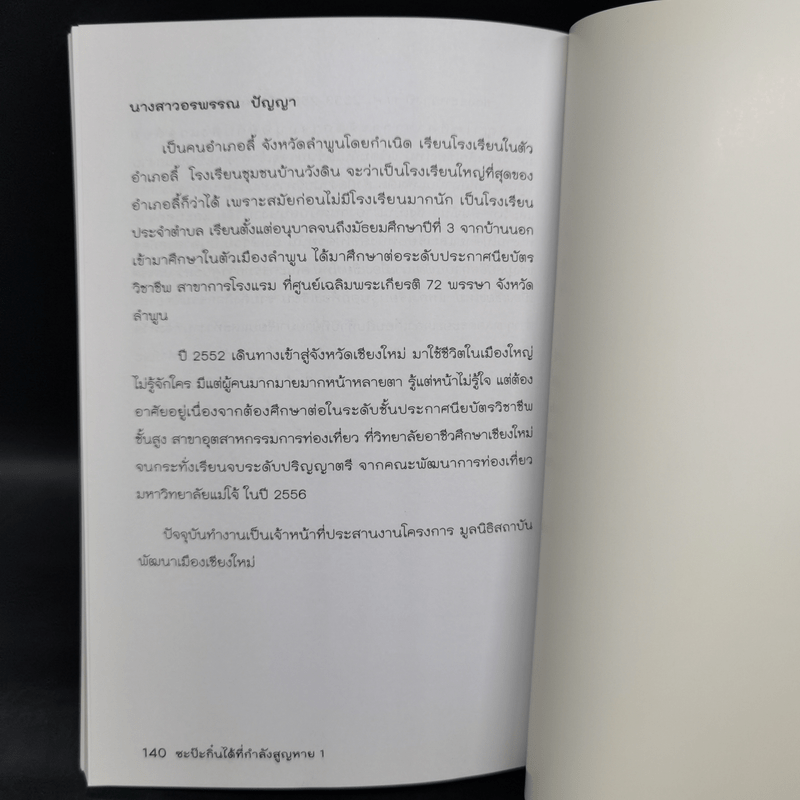 นางสาวอรพรรณ ปัญญา
เป็นคนอำเภอลี้ จังหวัดลำพูนโดยกำเนิด เรียนโรงเรียนในตัว
อำเภอลี้ โรงเรียนชุมชนบ้านวังดิน จะว่าเป็นโรงเรียนใหญ่ที่สุดของ
อำเภอลี้ก็ว่าได้ เพราะสมัยก่อนไม่มีโรงเรียนมากนัก เป็นโรงเรียน
ประจำตำบล เรียนตั้งแต่อนุบาลจนถึงมัธยมศึกษาปีที่ 3 จากบ้านนอก
เข้ามาศึกษาในตัวเมืองลำพูน ได้มาศึกษาต่อระดับประกาศนียบัตร
วิชาชีพ สาขาการโรงแรม ที่ศูนย์เฉลิมพระเกียรติ 72 พรรษา จังหวัด
ลำพูน
ปี 2552 เดินทางเข้าสู่จังหวัดเชียงใหม่ มาใช้ชีวิตในเมืองใหญ่
ไม่รู้จักใคร มีแต่ผู้คนมากมายมากหน้าหลายตา รู้แต่หน้าไม่รู้ใจ แต่ต้อง
อาศัยอยู่เนื่องจากต้องศึกษาต่อในระดับชั้นประกาศนียบัตรวิชาชีพ
ชั้นสูง สาขาอุตสาหกรรมการท่องเที่ยว ที่วิทยาลัยอาชีวศึกษาเชียงใหม่
จนกระทั่งเรียนจบระดับปริญญาตรี จากคณะพัฒนาการท่องเที่ยว
มหาวิทยาลัยแม่โจ้ ในปี 2556
ปัจจุบันทำงานเป็นเจ้าหน้าที่ประสานงานโครงการ มูลนิธิสถาบัน
พัฒนาเมืองเชียงใหม่
140 ชะป๊ะกิ๋นได้ที่กำลังสูญหาย 1